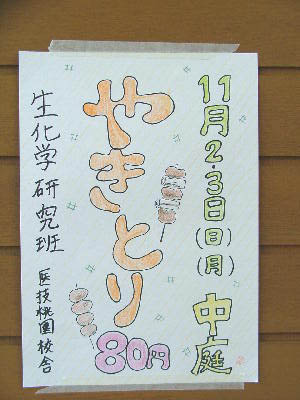 11月2・3日(日)(月) 中庭
やきとり
80円
生化学研究班
医技桃園校舎